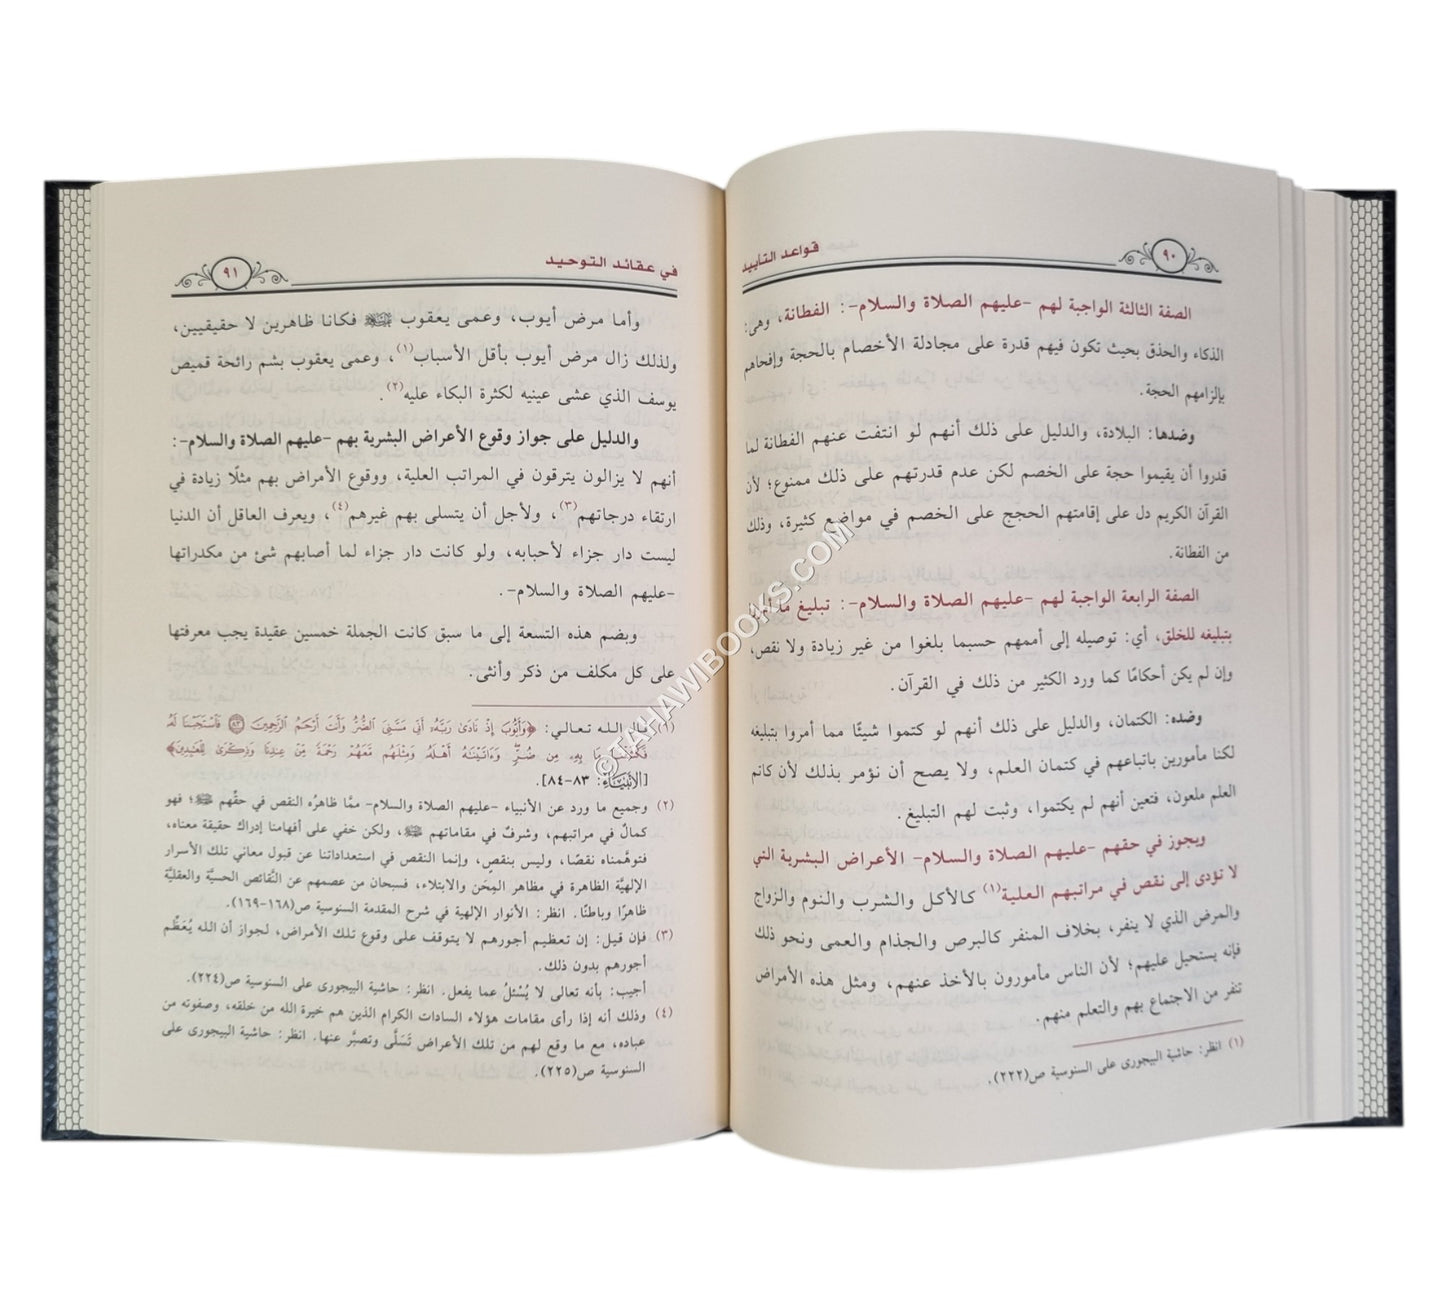 قواعد التأييد
٩٠
الصفة الثالثة الواجبة لهم -عليهم الصلاة والسلام-: الفطانة، وهى:
الذكاء والحذق بحيث تكون فيهم قدرة على مجادلة الأخصام بالحجة وإفحاهم
بإلزامهم الحجة.
وضدها: البلادة، والدليل على ذلك أنهم لو انتفت عنهم الفطانة لما
قدروا أن يقيموا حجة على الخصم لكن عدم قدرتهم على ذلك ممنوع؛ لأن
القرآن الكريم دل على إقامتهم الحجج على الخصم في مواضع كثيرة، وذلك
من الفطانة.
الصفة الرابعة الواجبة لهم -عليهم الصلاة والسلام-: تبليغ ما أمروا
بتبليغه للخلق، أي: توصيله إلى أممهم حسبما بلغوا من غير زيادة ولا نقص،
وإن لم يكن أحكامًا كما ورد الكثير من ذلك في القرآن.
وضده: الكتمان، والدليل على ذلك أنهم لو كتموا شيئًا مما أمروا بتبليغه
لكنا مأمورين باتباعهم في كتمان العلم، ولا يصح أن نؤمر بذلك لأن كاتم
العلم ملعون، فتعين أنهم لم يكتموا، وثبت لهم التبليغ.
ويجوز في حقهم -عليهم الصلاة والسلام- الأعراض البشرية التي
لا تؤدى إلى نقص في مراتبهم العلية(١) كالأكل والشرب والنوم والزواج
والمرض الذي لا ينفر، بخلاف المنفر كالبرص والجذام والعمى ونحو ذلك
فإنه يستحيل عليهم؛ لأن الناس مأمورون بالأخذ عنهم، ومثل هذه الأمراض
تنفر من الاجتماع بهم والتعلم منهم.
(١) انظر: حاشية البيجورى على السنوسية ص(٢٢٢).
في عقائد التوحيد
٩١
وأما مرض أيوب، وعمى يعقوب ﷺ فكانا ظاهرين لا حقيقيين،
ولذلك زال مرض أيوب بأقل الأسباب(١)، وعمى يعقوب بشم رائحة قميص
يوسف الذي عشى عينيه لكثرة البكاء عليه(٢).
والدليل على جواز وقوع الأعراض البشرية بهم -عليهم الصلاة والسلام-:
أنهم لا يزالون يترقون في المراتب العلية، ووقوع الأمراض بهم مثلًا زيادة في
ارتقاء درجاتهم(٣)، ولأجل أن يتسلى بهم غيرهم(٤)، ويعرف العاقل أن الدنيا
ليست دار جزاء لأحبابه، ولو كانت دار جزاء لما أصابهم شئ من مكدراتها
-عليهم الصلاة والسلام-.
وبضم هذه التسعة إلى ما سبق كانت الجملة خمسين عقيدة يجب معرفتها
على كل مكلف من ذكر وأنثى.
(١) قال الله تعالي: ﴿وَأَيُّوبَ إِذْ نَادَىٰ رَبَّهُۥ أَنِّي مَسَّنِيَ ٱلضُّرُّ وَأَنتَ أَرْحَمُ ٱلرَّٰحِمِينَ ٨٣ فَٱسْتَجَبْنَا لَهُۥ
فَكَشَفْنَا مَا بِهِۦ مِن ضُرٍّ وَءَاتَيْنَٰهُ أَهْلَهُۥ وَمِثْلَهُم مَّعَهُمْ رَحْمَةً مِّنْ عِندِنَا وَذِكْرَىٰ لِلْعَٰبِدِينَ﴾
[الأنبيَاء: ٨٣-٨٤].
(٢) وجميع ما ورد عن الأنبياء -عليهم الصلاة والسلام- ممَّا ظاهرُه النقص في حقِّهم ﷺ؛ فهو
كمالٌ في مراتبهم، وشرفٌ في مقاماتهم ﷺ، ولكن خفي على أفهامنا إدراك حقيقة معناه،
فتوهَّمناه نقصًا، وليس بنقصٍ، وإنما النقص في استعداداتنا عن قبول معاني تلك الأسرار
الإلهيَّة الظاهرة في مظاهر المِحَن والابتلاء، فسبحان من عصمهم عن النَّقائص الحسيَّة والعقليَّة
ظاهرًا وباطنًا. انظر: الأنوار الإلهية في شرح المقدمة السنوسية ص(١٦٨-١٦٩).
(٣) فإن قيل: إن تعظيم أجورهم لا يتوقف على وقوع تلك الأمراض، لجواز أن الله يُعَظِّم
أجورهم بدون ذلك.
أجيب: بأنه تعالى لا يُسْئلُ عما يفعل. انظر: حاشية البيجورى على السنوسية ص(٢٢٤).
(٤) وذلك أنه إذا رأى مقامات هؤلاء السادات الكرام الذين هم خيرة الله من خلقه، وصفوته من
عباده، مع ما وقع لهم من تلك الأعراض تَسَلَّى وتصبَّر عنها. انظر: حاشية البيجورى على
السنوسية ص(٢٢٥).
©TAHAWIBOOKS.COM